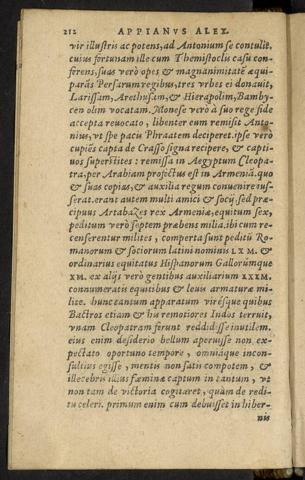 212 APPIANVS ALEX.
vir illustris ac potens, ad Antonium se contulit,
cuius fortunam ille cum Themistoclis casu con-
ferens, suas verò opes & magnanimitatē æqui-
parās Persarum regibus, tres vrbes ei donauit,
Larissam, Arethusam, & Hierapolim, Bamby-
cen olim vocatam. Monese verò à suo rege fide
accepta reuocato, libenter eum remisit Anto-
nius, vt spe pacu Phraatem deciperet. ipse verò
cupiēs capta de Crasso signa recipere, & capti-
uos superstites: remissa in Aegyptum Cleopa-
tra, per Arabiam profectus est in Armeniā. quo
& suas copias, & auxilia regum conuenire ius-
serat. erant autem multi amici & socij. sed præ-
cipuus Artabazes rex Armeniæ, equitum sex,
peditum verò septem præbens milia. ibi cum re-
censerentur milites, comperta sunt peditū Ro-
manorum & sociorum latini nominis LX M. &
ordinarius equitatus Hispanorum Gallorúmque
XM. ex alijs verò gentibus auxiliarium XXXM.
connumeratis equitibus & leuis armaturæ mi-
lite. hunc tantum apparatum virésque quibus
Bactros etiam & his remotiores Indos terruit,
vnam Cleopatram ferunt reddidisse inutilem.
eius enim desiderio bellum aperuisse non ex-
pectato oportuno tempore, omniáque incon-
sultius egisse, mentis non satis compotem, &
illecebris illius fœminæ captum in tantum, vt
non tam de victoria cogitaret, quàm de redi-
tu celeri. primum enim cum debuisset in hiber-
nis